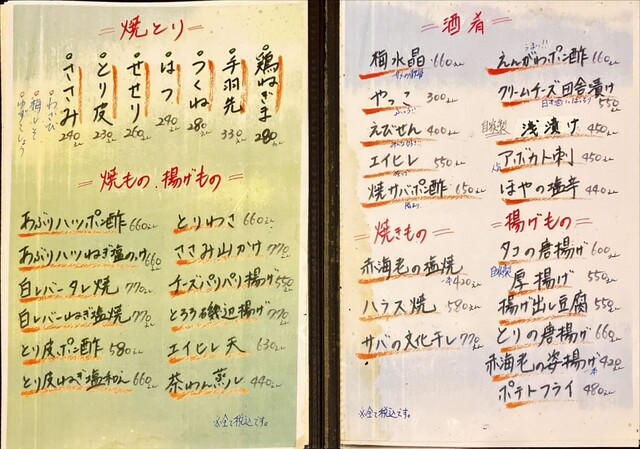 ＝焼とり＝
鶏ねぎま 280
手羽先 330
つくね 280
はつ 240
せせり 260
とり皮 230
ささみ 240
わさび
梅しそ
ゆずこしょう
＝焼もの、揚げもの＝
あぶりハツポン酢 660えん
あぶりハツねぎ塩のっけ 660
白レバータレ焼 770えん
白レバーねぎ塩焼 770えん
とり皮ポン酢 580えん
とり皮ねぎ塩和え 660えん
とりわさ 660えん
ささみ山かけ 770えん
チーズパリパリ揚げ 550えん
とろろ磯辺揚げ 770えん
エイヒレ天 630えん
茶わん蒸し 440えん
※全て税込です。
＝酒肴＝
梅水晶 660えん
やっこ 300えん
えびせん 400えん
エイヒレ 550えん
焼サバポン酢 650えん
うまい!!
えんがわポン酢 660えん
クリームチーズ田舎漬け 550えん
自家製 浅漬け 450えん
アボカド刺 450えん
ほやの塩辛 440えん
＝焼きもの＝
赤海老の塩焼 420えん
ハラス焼 580えん
サバの文化干し 770えん
＝揚げもの＝
タコの唐揚げ 600えん
自家製 厚揚げ 550えん
揚げ出し豆腐 550えん
とりの唐揚げ 660えん
赤海老の姿揚げ 420えん
ポテトフライ 480えん
※全て税込です。